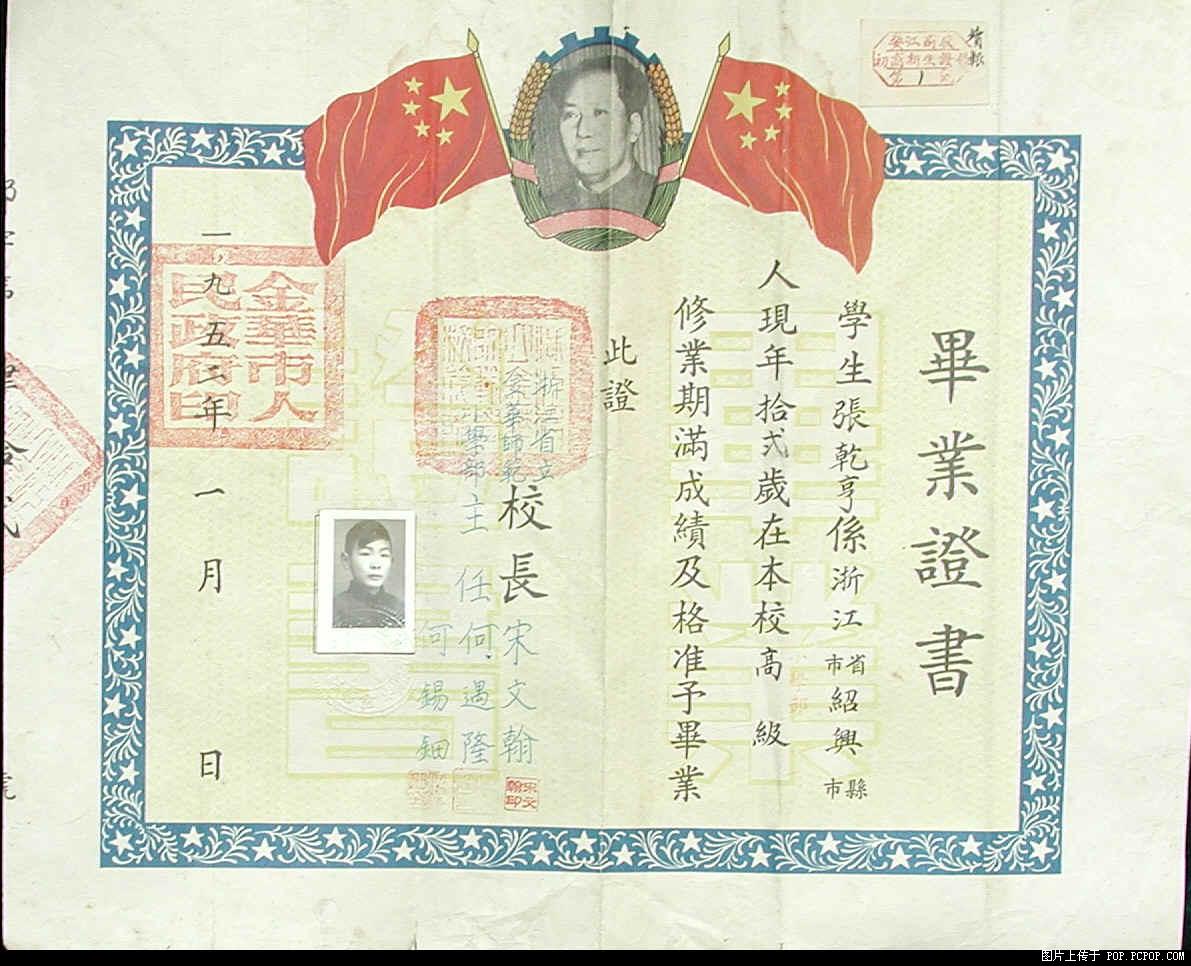 畢業證書
學生張乾亨係浙江省市紹興縣市
人現年拾弍歲在本校高級
修業期滿成績及格准予畢業
此證
浙江省立
金華師範
小學部
校長宋文翰
主任何遇隆
何錫鈿
宋文翰印
一九五三年一月日
金華市人民政府印
图片上传于 POP.PCPOP.COM